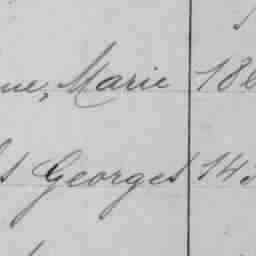 ue, Marie 18
s Georges 14